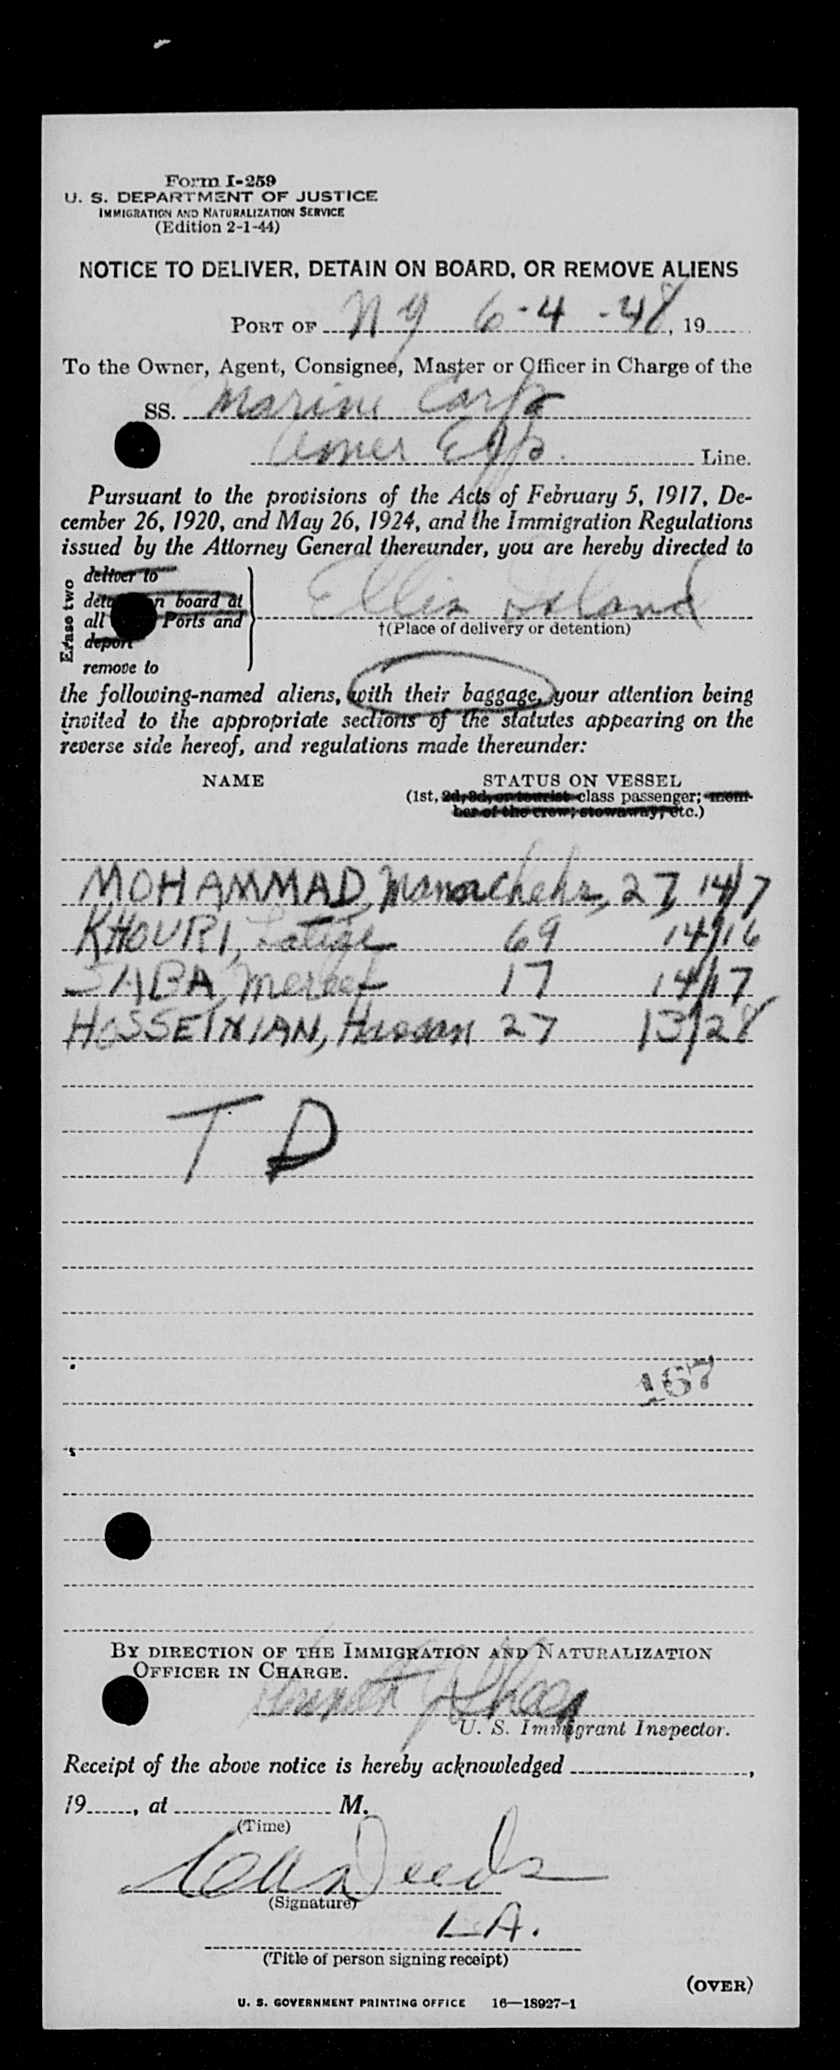 Form I-259
U. S. DEPARTMENT OF JUSTICE
IMMIGRATION AND NATURALIZATION SERVICE
(Edition 2-1-44)
NOTICE TO DELIVER, DETAIN ON BOARD, OR REMOVE ALIENS
PORT OF NY 6-4-48, 19
To the Owner, Agent, Consignee, Master or Officer in Charge of the
SS. Marine Carp
Amer Exp. Line.
Pursuant to the provisions of the Acts of February 5, 1917, De-
cember 26, 1920, and May 26, 1924, and the Immigration Regulations
issued by the Attorney General thereunder, you are hereby directed to
Erase two
deliver to
on board at
all Ports and
deport
remove to
Ellis Island
†(Place of delivery or detention)
the following-named aliens, with their baggage, your attention being
invited to the appropriate sections of the statutes appearing on the
reverse side hereof, and regulations made thereunder:
NAME STATUS ON VESSEL
(1st, 2d, 3d, or tourist class passenger; mem-
ber of the crew; stowaway, etc.)
MOHAMMAD, Manochehr, 27, 14/7
KHOURI, 69 14/16
SABA, 17 14/17
HOSSEINIAN, Hassan 27 13/28
T D
167
BY DIRECTION OF THE IMMIGRATION AND NATURALIZATION
OFFICER IN CHARGE.
U. S. Immigrant Inspector.
Receipt of the above notice is hereby acknowledged ,
19 , at M.
(Time)
Deeds
(Signature)
L.A.
(Title of person signing receipt)
(OVER)
U. S. GOVERNMENT PRINTING OFFICE 16—18927-1